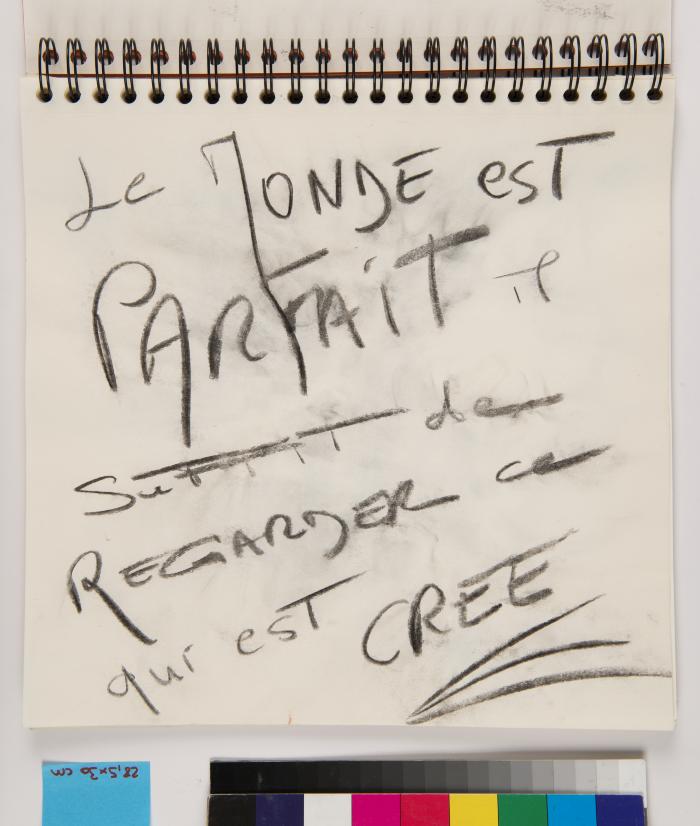 Le MONDE est
PARFAIT il
suffit de
REGARDER ce
qui est CREE
28,5x30 cm